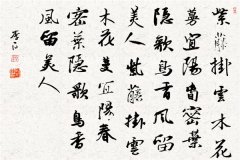 紫藤掛雲木花
蔓宜陽春密葉
隱歌鳥香風留
美人紫藤掛雲
木花蔓宜陽春
密葉隱歌鳥香
風留美人